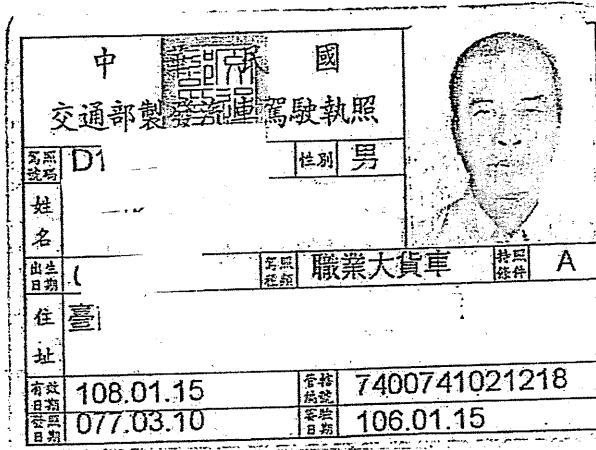 中華民國
交通部製發汽車駕駛執照
駕照號碼 D1 性別 男
姓名
出生日期 駕照種類 職業大貨車 持照條件 A
住址 臺
有效日期 108.01.15 管轄編號 7400741021218
發照日期 077.03.10 審驗日期 106.01.15